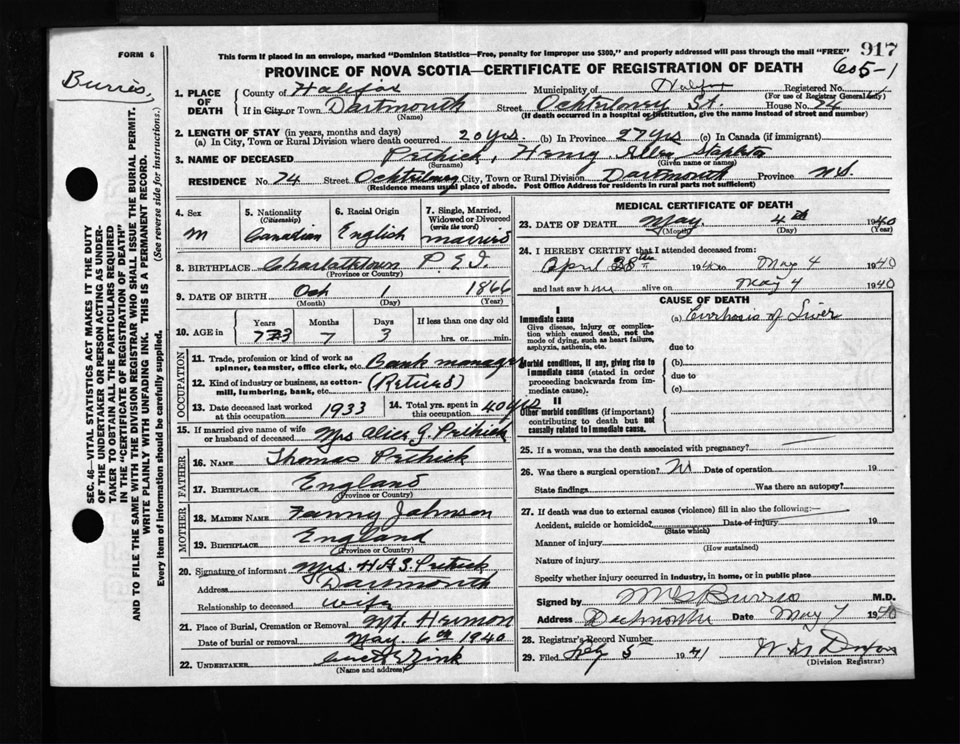 FORM 6
This form if placed in an envelope, marked "Dominion Statistics—Free, penalty for improper use $300," and properly addressed will pass through the mail "FREE"
917
605-1
Burris,
PROVINCE OF NOVA SCOTIA—CERTIFICATE OF REGISTRATION OF DEATH
SEC. 46—VITAL STATISTICS ACT MAKES IT THE DUTY
OF THE UNDERTAKER OR PERSON ACTING AS UNDER-
TAKER TO OBTAIN ALL THE PARTICULARS REQUIRED
IN THE "CERTIFICATE OF REGISTRATION OF DEATH"
AND TO FILE THE SAME WITH THE DIVISION REGISTRAR WHO SHALL ISSUE THE BURIAL PERMIT.
WRITE PLAINLY WITH UNFADING INK. THIS IS A PERMANENT RECORD.
Every item of information should be carefully supplied. (See reverse side for instructions.)
1. PLACE OF DEATH County of Halifax Municipality of Halifax Registered No.
(For use of Registrar General only)
If in City or Town Dartmouth Street Ochterloney St. House No. 74
(Name) (If death occurred in a hospital or institution, give the name instead of street and number)
2. LENGTH OF STAY (in years, months and days)
(a) In City, Town or Rural Division where death occurred 20 yrs. (b) In Province 27 yrs (c) In Canada (if immigrant)
3. NAME OF DECEASED Prthick, Henry Allen
(Surname) (Given name or names)
RESIDENCE No. 74 Street Ochterloney City, Town or Rural Division Dartmouth Province N.S.
(Residence means usual place of abode. Post Office Address for residents in rural parts not sufficient)
4. Sex M
5. Nationality (Citizenship) Canadian
6. Racial Origin English
7. Single, Married, Widowed or Divorced (write the word) Married
8. BIRTHPLACE Charlottetown P.E.I.
(Province or Country)
9. DATE OF BIRTH Oct 1 1866
(Month) (Day) (Year)
10. AGE in Years 73 Months 7 Days 3 If less than one day old
hrs. or min.
OCCUPATION
11. Trade, profession or kind of work as spinner, teamster, office clerk, etc. Bank manager
12. Kind of industry or business, as cotton-mill, lumbering, bank, etc. (Retired)
13. Date deceased last worked at this occupation 1933
14. Total yrs. spent in this occupation 40 yrs
15. If married give name of wife or husband of deceased Mrs Alice G. Prthick
FATHER
16. NAME Thomas Prthick
17. BIRTHPLACE England
(Province or Country)
MOTHER
18. MAIDEN NAME Fanny Johnson
19. BIRTHPLACE England
(Province or Country)
20. Signature of informant Mrs. H.A.S. Prthick
Address Dartmouth
Relationship to deceased wife
21. Place of Burial, Cremation or Removal Mt. Hermon
Date of burial or removal May 6th 1940
22. UNDERTAKER Zink
(Name and address)
MEDICAL CERTIFICATE OF DEATH
23. DATE OF DEATH May. 4th 1940
(Month) (Day) (Year)
24. I HEREBY CERTIFY that I attended deceased from:
April 28th 1940 to May 4 1940
and last saw him alive on May 4 1940
CAUSE OF DEATH
I
Immediate cause
Give disease, injury or complication which caused death, not the mode of dying, such as heart failure, asphyxia, asthenia, etc.
(a) Cirrhosis of Liver
due to
Morbid conditions, if any, giving rise to immediate cause (stated in order proceeding backwards from immediate cause).
(b)
due to
(c)
II
Other morbid conditions (if important) contributing to death but not causally related to immediate cause.
25. If a woman, was the death associated with pregnancy?
26. Was there a surgical operation? No Date of operation 19
State findings Was there an autopsy?
27. If death was due to external causes (violence) fill in also the following:
Accident, suicide or homicide? Date of injury 19
(State which)
Manner of injury
(How sustained)
Nature of injury
Specify whether injury occurred in industry, in home, or in public place
Signed by Burris M.D.
Address Dartmouth Date May 7 1940
28. Registrar's Record Number
29. Filed July 5 1941 Dixon
(Division Registrar)